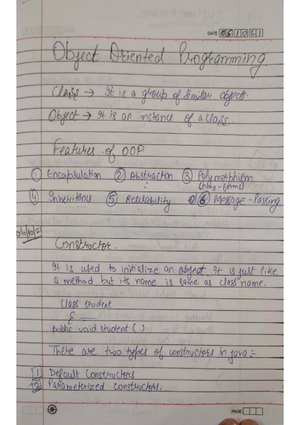 DATE 05 10 21
Object Oriented Programming
Class → It is a group of similar object.
Object → It is an instance of a class.
Features of OOP
① Encapsulation ② Abstraction ③ Polymorphism
④ Inheritance ⑤ Reusability ⑥ Message-Passing
Constructor.
It is used to initialize an object. It is just like
a method but its name is same as class name.
Class student
{
public void student ( )
There are two types of constructors in java :-
1 Default Constructors
2 Parameterized constructors.
PAGE